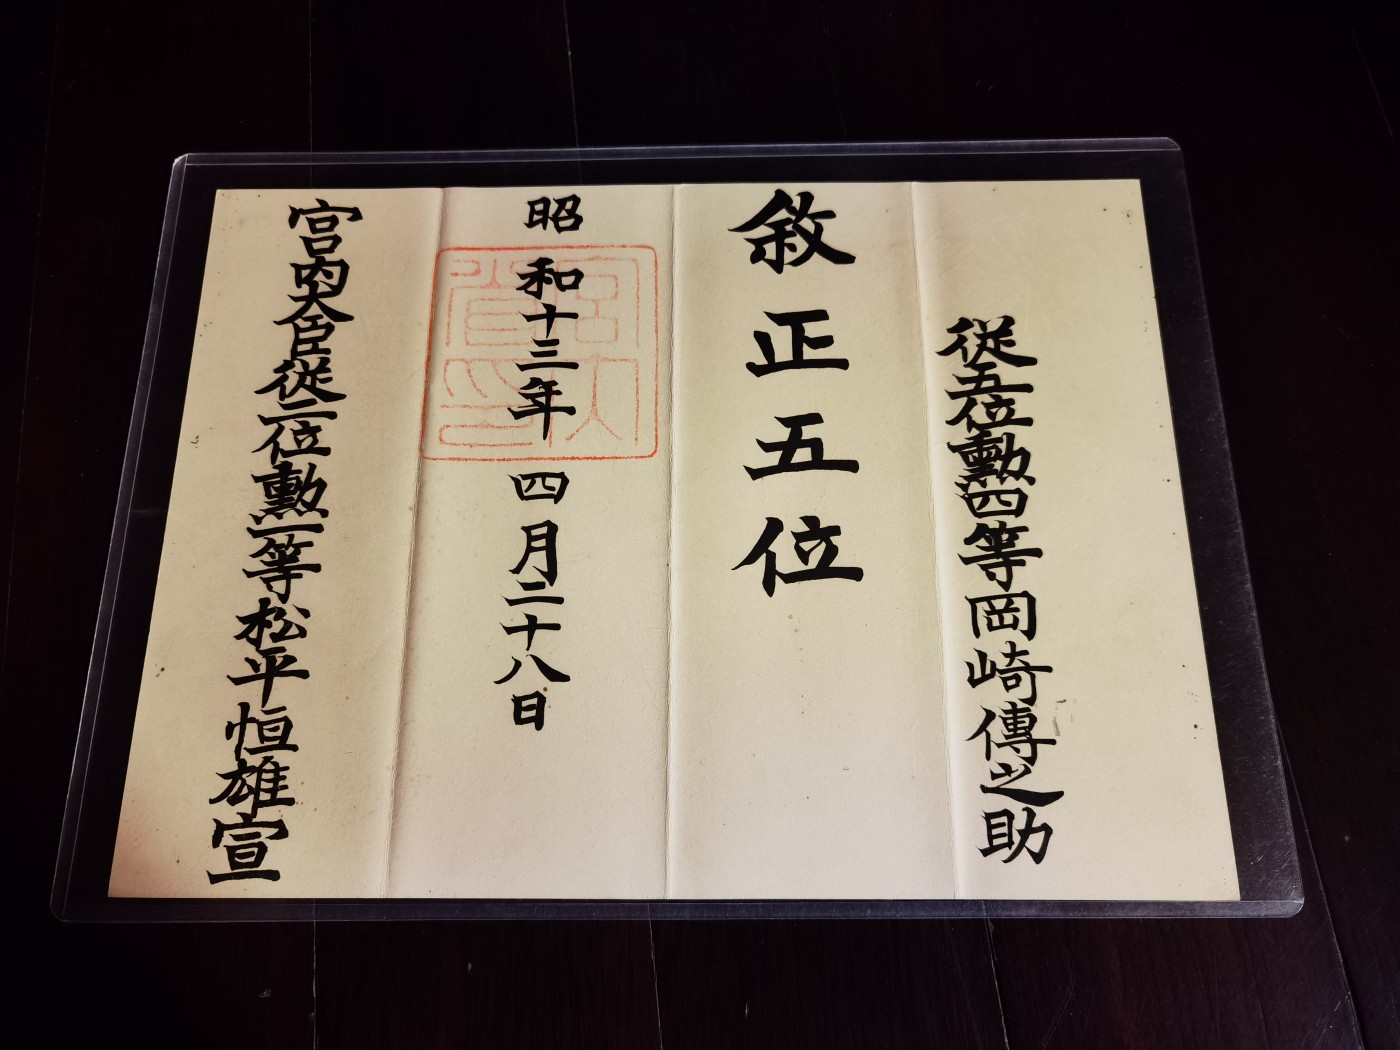 従五位勳四等岡崎傳之助
敘正五位
昭和十三年四月二十八日
宮内省印
宮内大臣従二位勳一等松平恒雄宣